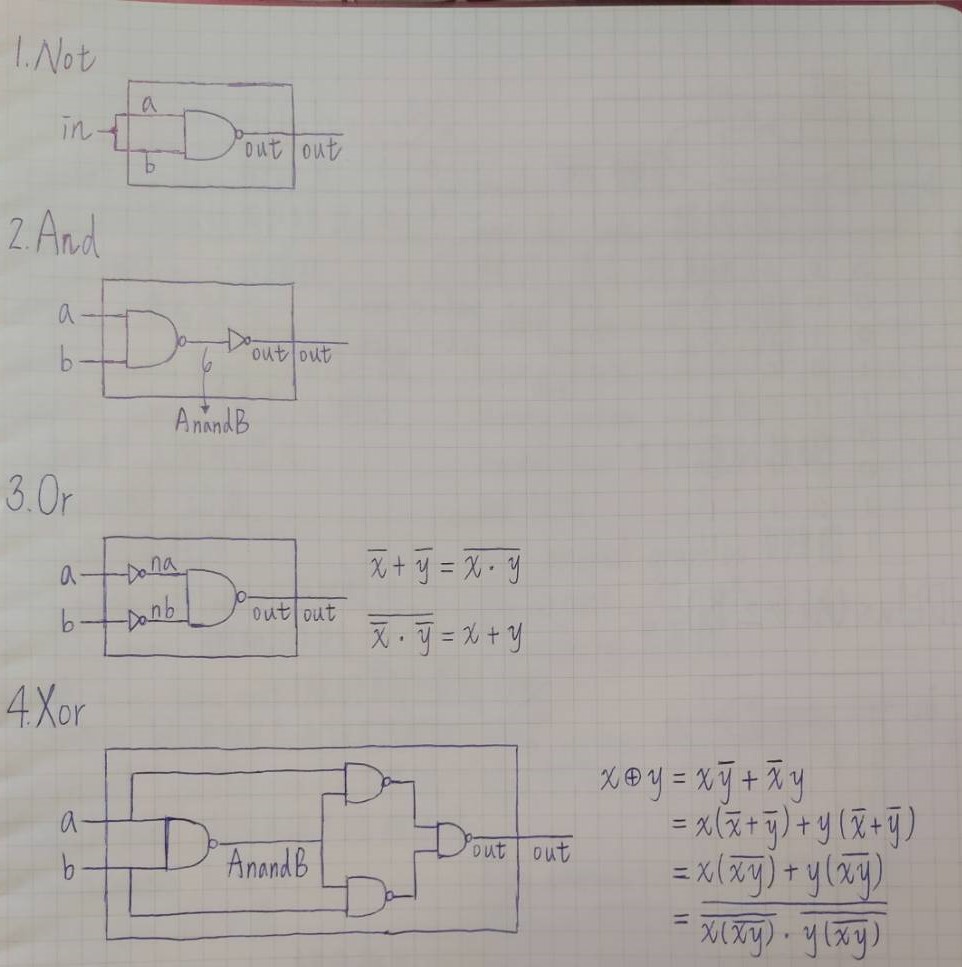 1.Not
a
in
out out
b
2.And
a
b
out out
AnandB
3.Or
a na
b nb
out out
x̅ + y̅ = \overline{x · y}
\overline{x̅ · y̅} = x + y
4.Xor
a
b
AnandB
out out
x ⊕ y = x y̅ + x̅ y
= x(x̅ + y̅) + y(x̅ + y̅)
= x(\overline{xy}) + y(\overline{xy})
= \overline{\overline{x(\overline{xy})} · \overline{y(\overline{xy})}}